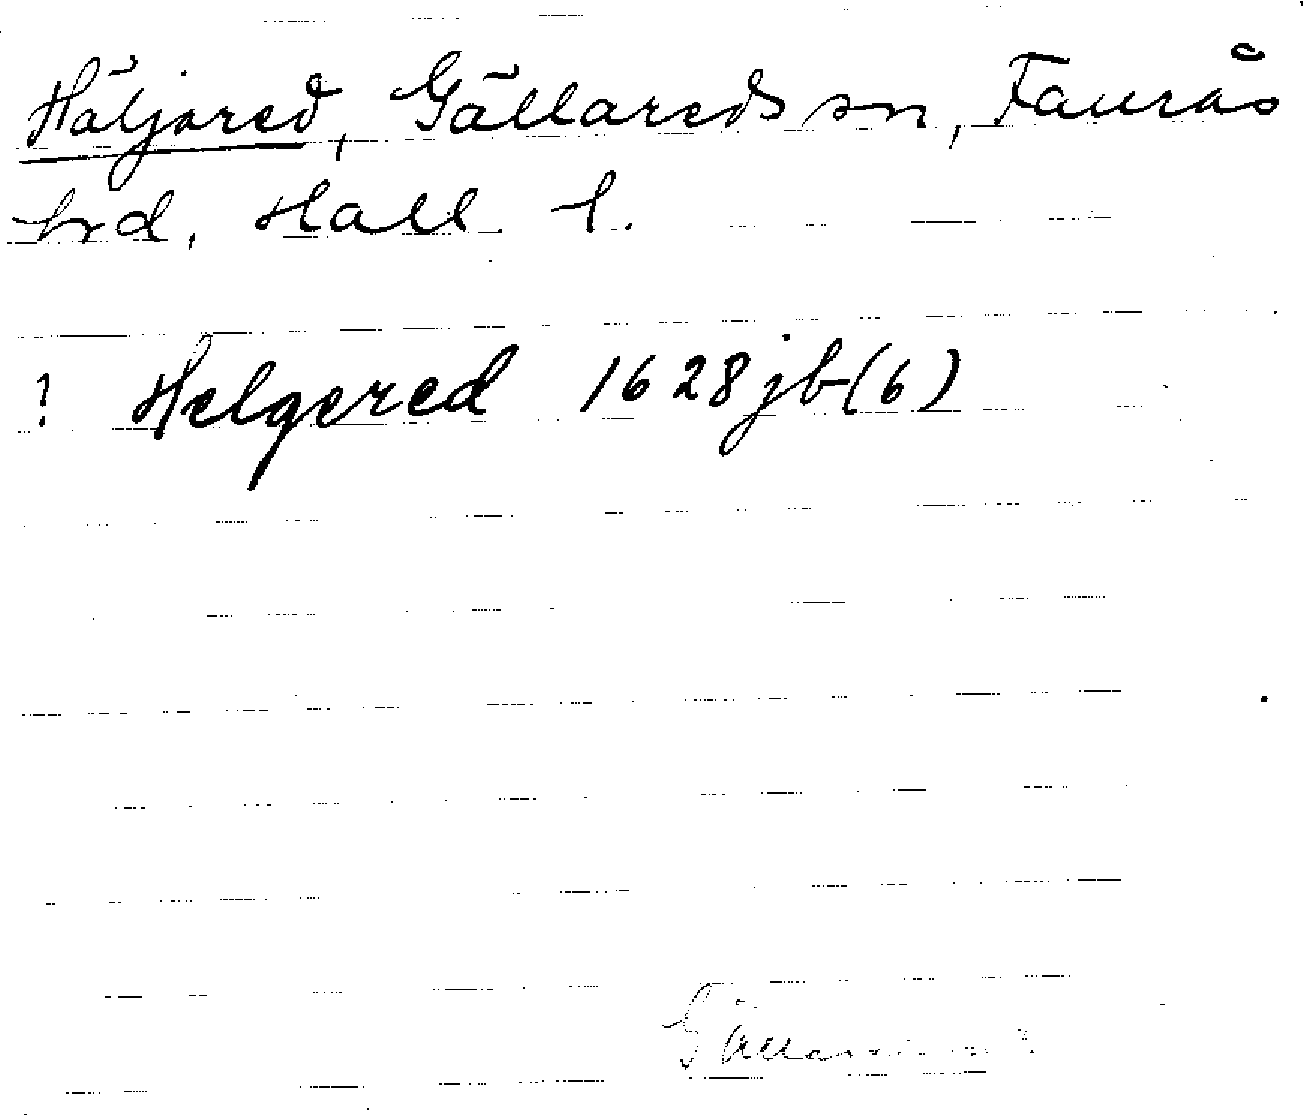 Häljared, Gällareds sn, Faurås
hrd, Hall. l.
! Helgered 1628 jb (6)